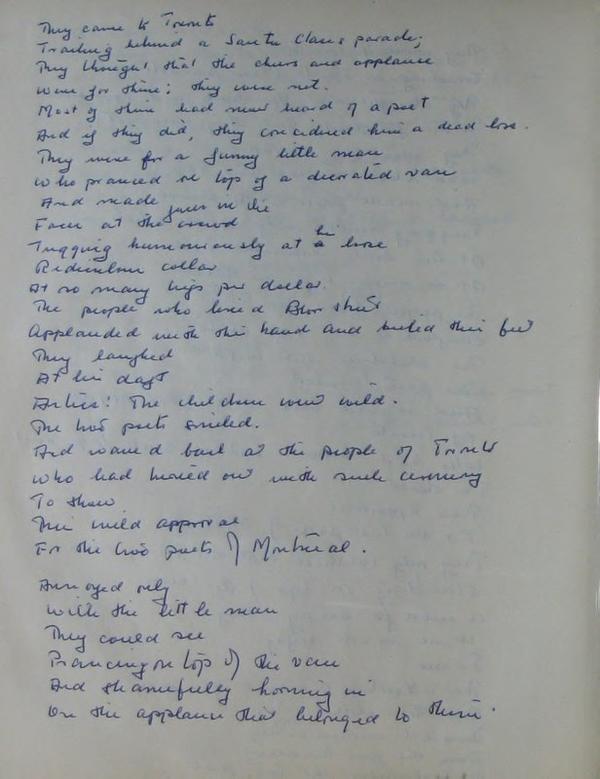 They came to Toronto
Trailing behind a Santa Claus parade;
They thought that the cheers and applause
Were for them; they were not.
Most of them had never heard of a poet
And if they did, they considered him a dead loss.
They were for a funny little man
who pranced on top of a decorated van
And made
Faces at the crowd
Tugging humorously at his loose
Ridiculous collar
At so many legs per dollar.
The people who lined Bloor Street
Applauded with their hand and beled their feet
They laughed
At his daft
Antics! The children went wild.
The two poets smiled.
And waved back at the people of Toronto
who had turned out with such ceremony
To show
Their wild approval
For the two poets of Montreal.
Annoyed only
With the little man
They could see
Prancing on top of the van
And shamefully horning in
On the applause that belonged to them.